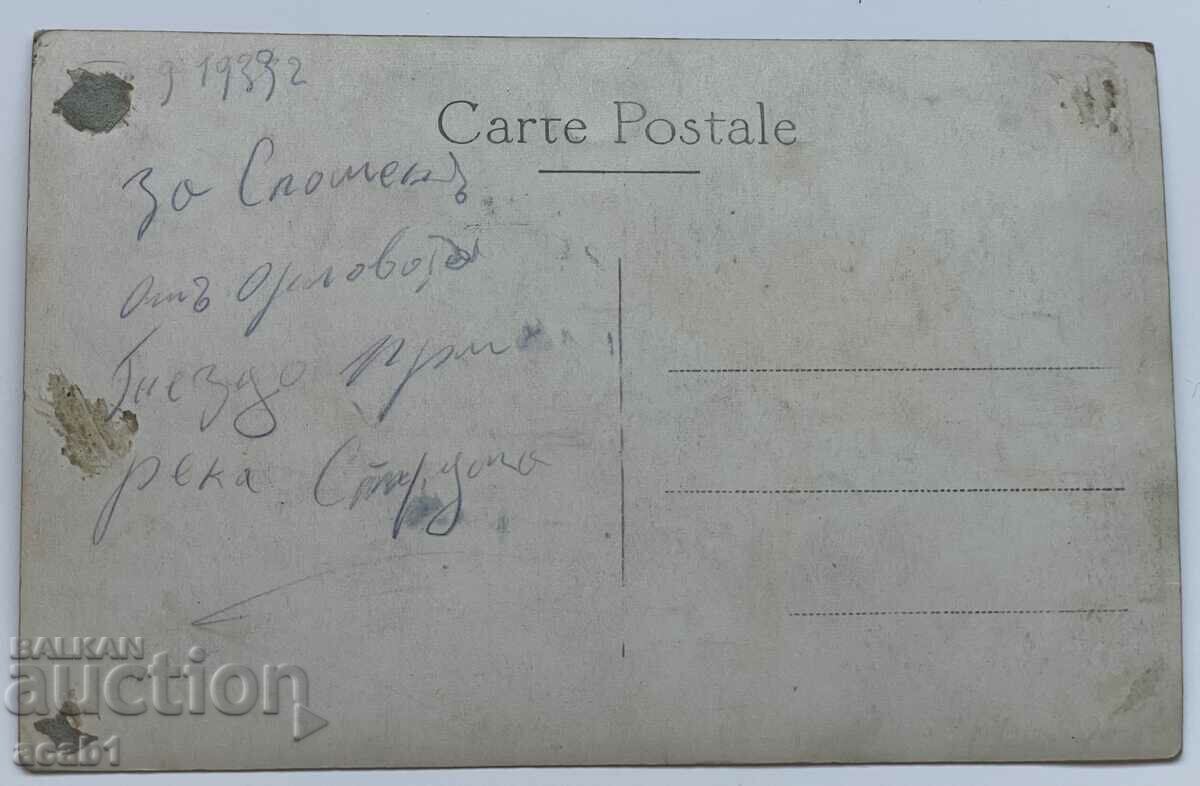 Carte Postale
за Споменъ
отъ орловото
Гнездо при
река Струма
BALKAN
auction
acab1